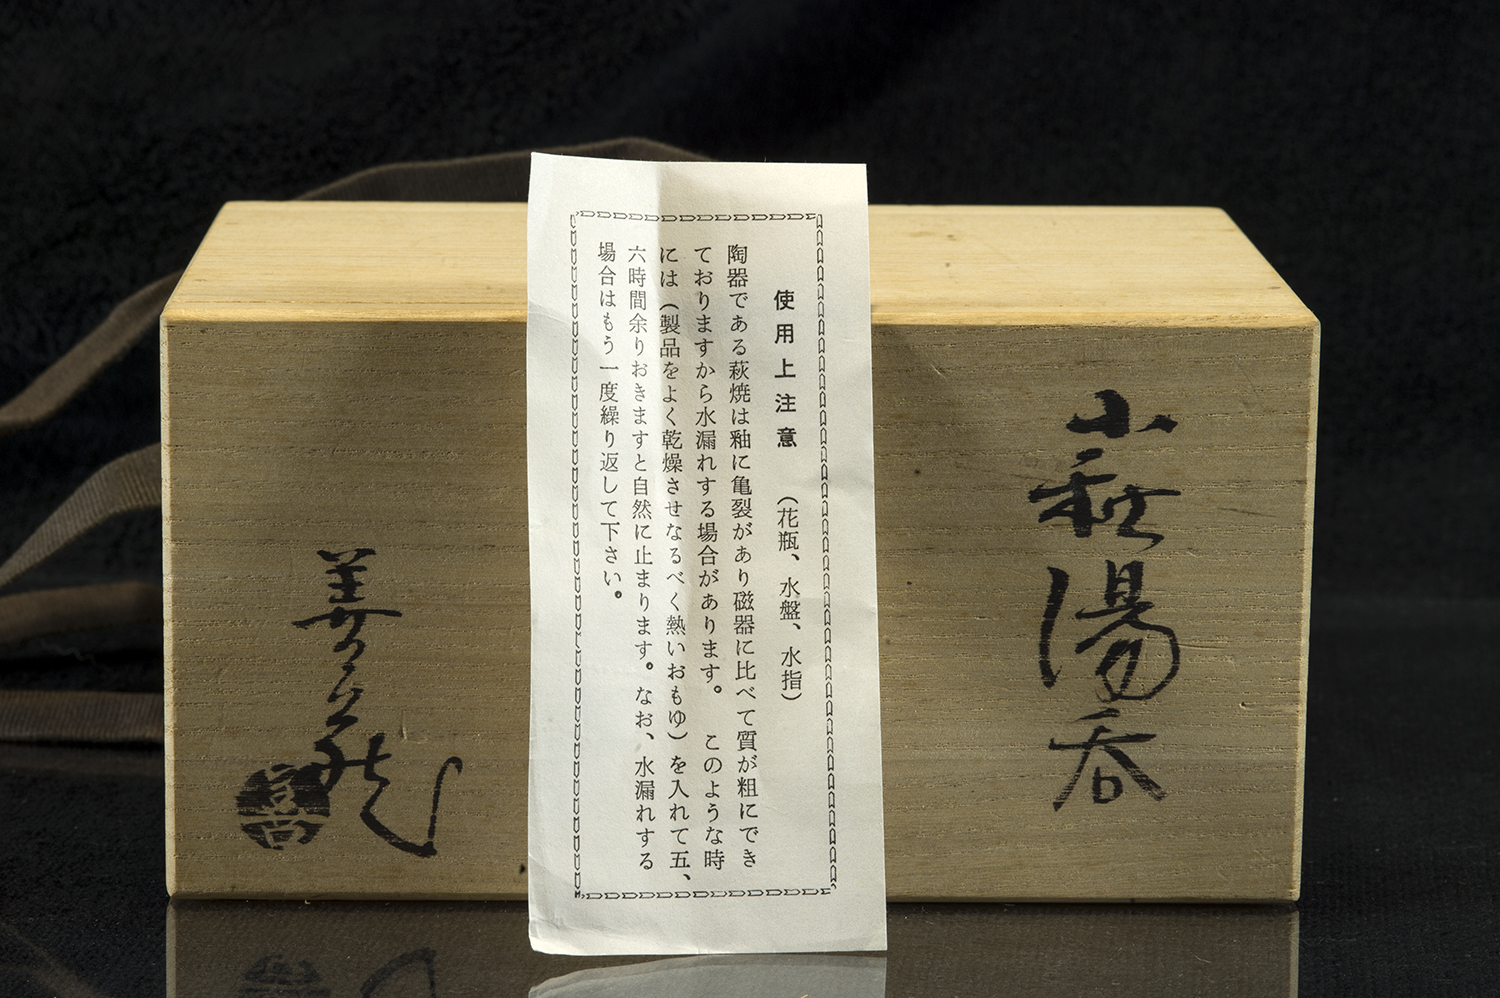 萩湯呑
使用上注意 (花瓶、水盤、水指)
陶器である萩焼は釉に亀裂があり磁器に比べて質が粗にでき
ておりますから水漏れする場合があります。 このような時
には (製品をよく乾燥させなるべく熱いおもゆ) を入れて五、
六時間余りおきますと自然に止まります。なお、水漏れする
場合はもう一度繰り返して下さい。